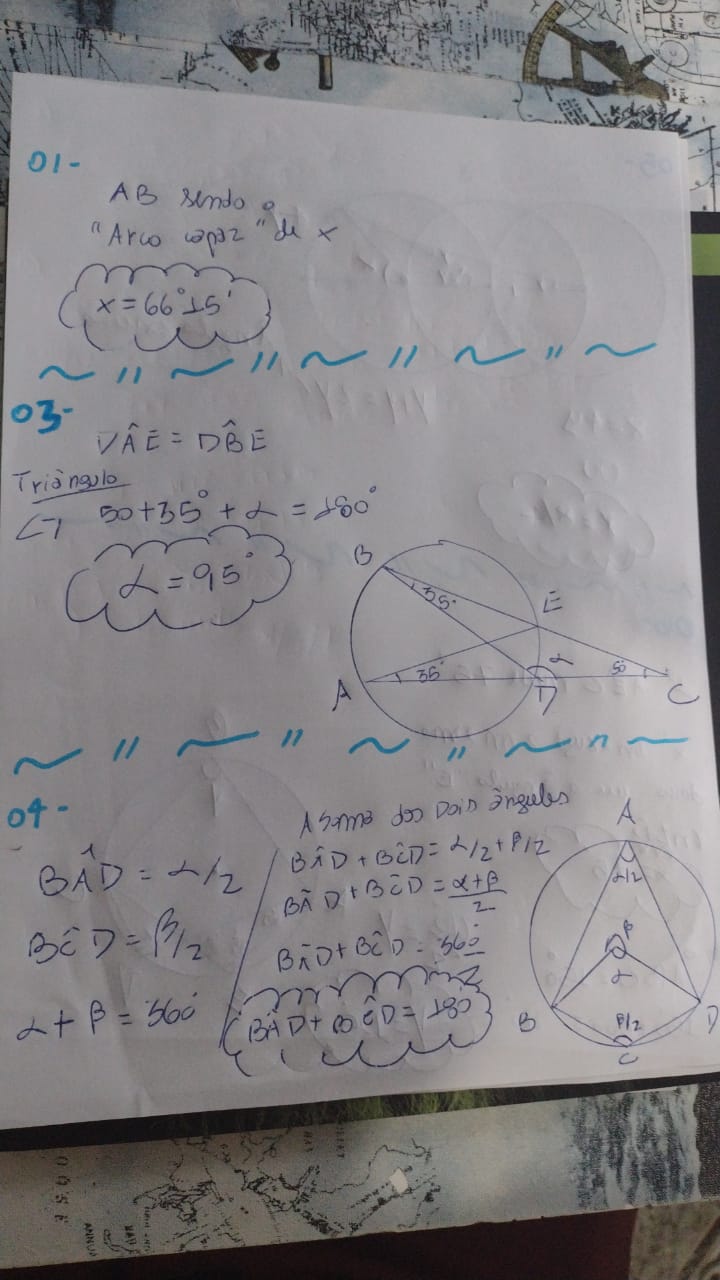 01-
AB sendo o
"Arco capaz" de x
x = 66° 15'
03-
DÂE = DB̂E
Triângulo
50 + 35° + α = 180°
α = 95°
B
35°
E
α
A
35°
D
50
C
04-
BÂD = α/2
BĈD = β/2
α + β = 360°
A soma dos Dois ângulos
BÂD + BĈD = α/2 + β/2
BÂD + BĈD = α+β/2
BÂD + BĈD = 360/2
BÂD + BĈD = 180
A
α/2
β
α
B
β/2
D
C